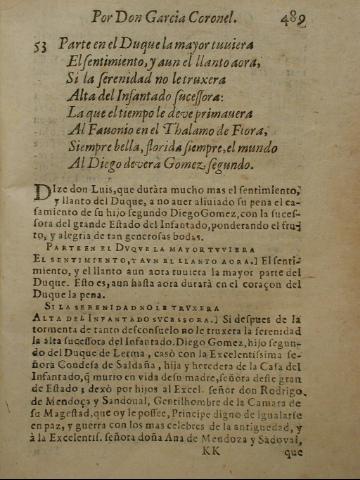 Por Don Garcia Coronel. 489
53 Parte en el Duque la mayor tuuiera
El sentimiento, y aun el llanto aora,
Si la serenidad no le truxera
Alta del Infantado sucessora:
La que el tiempo le deve primauera
Al Fauonio en el Thalamo de Flora,
Siempre bella, florida siempre, el mundo
Al Diego deverà Gomez, segundo.
Dize don Luis, que duràra mucho mas el sentimiento,
y llanto del Duque, a no auer aliuiado su pena el ca-
samiento de su hijo segundo Diego Gomez, con la suces-
sora del grande Estado del Infantado, ponderando el fru-
to, y alegria de tan generosas bodas.
PARTE EN EL DVQVE LA MAYOR TVVIERA
EL SENTIMIENTO, Y AVN EL LLANTO AORA.] El senti-
miento, y el llanto aun aora tuuiera la mayor parte del
Duque. Esto es, aun hasta aora durarà en el coraçon del
Duque la pena.
SI LA SERENIDAD NO LE TRVXERA
ALTA DEL INFANTADO SVCESSORA.] Si despues de la
tormenta de tanto desconsuelo no le truxera la serenidad
la alta sucessora del Infantado. Diego Gomez, hijo segun-
do del Duque de Lerma, casò con la Excelentissima se-
ñora Condesa de Saldaña, hija y heredera de la Casa del
Infantado, q̃ murio en vida de su madre, señora deste gran
de Estado; dexò por hijos al Excel. señor don Rodrigo
de Mendoça y Sandoual, Gentilhombre de la Camara de
su Magestad, que oy le possee, Principe digno de igualarse
en paz, y guerra con los mas celebres de la antiguedad, y
à la Excelentis. señora doña Ana de Mendoza y Sadoval,
KK que